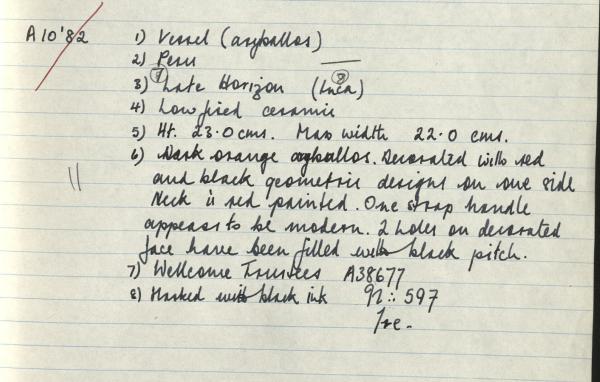 A10'82 1) Vessel (aryballos)
2) Peru
3) Late Horizon (Inca)
4) Low fired ceramic
5) Ht. 23.0 cms. Max width 22.0 cms.
6) Dark orange aryballos. Decorated with red
and black geometric designs on one side
Neck is red painted. One strap handle
appears to be modern. 2 holes on decorated
face have been filled with black pitch.
7) Wellcome Trustees A38677
8) Marked with black ink 597